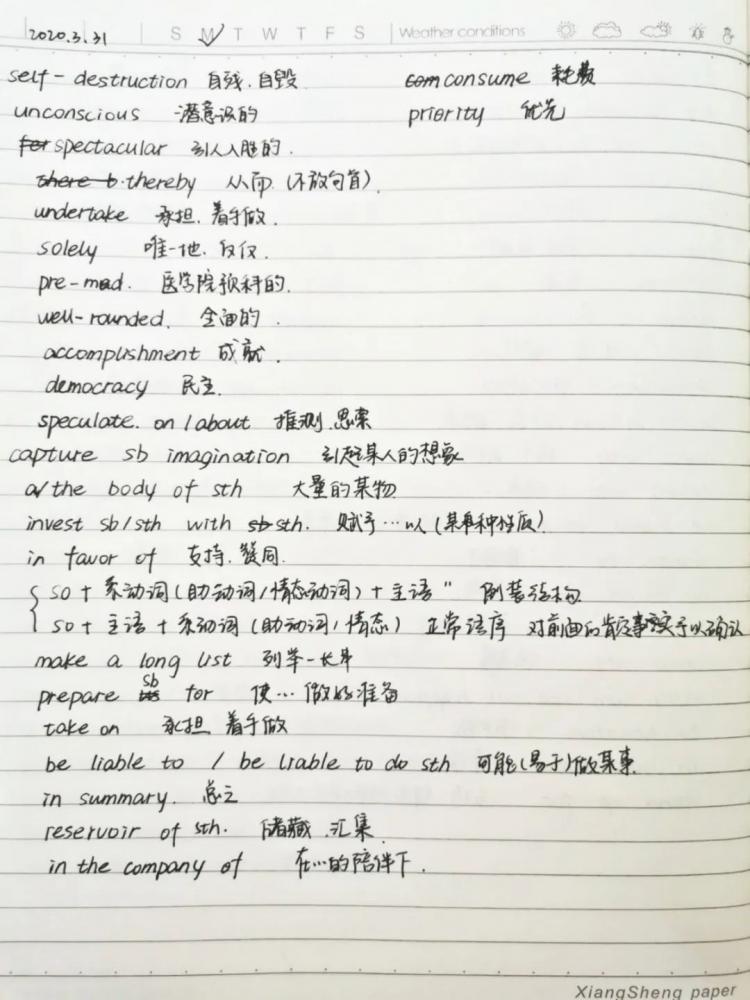 2020.3.31 S M T W T F S Weather conditions
self-destruction 自残.自毁 consume 耗费
unconscious 潜意识的 priority 优先
spectacular 引人入胜的.
thereby 从而.(不放句首).
undertake 承担.着手做.
solely 唯一地.仅仅.
pre-med. 医学院预科的.
well-rounded. 全面的.
accomplishment 成就.
democracy 民主.
speculate. on / about 推测.思索
capture sb imagination 引起某人的想象
a/the body of sth 大量的某物.
invest sb/sth with sth. 赋予…以(某种性质)
in favor of 支持.赞同.
so + 系动词(助动词/情态动词)+主语" 倒装结构
so + 主语 + 系动词(助动词/情态) 正常语序 对前面的肯定事实予以确认
make a long list 列举一长串
prepare sb for 使…做好准备
take on 承担 着手做
be liable to / be liable to do sth 可能(易于)做某事.
in summary. 总之
reservoir of sth. 储藏.汇集.
in the company of 在…的陪伴下.
XiangSheng paper